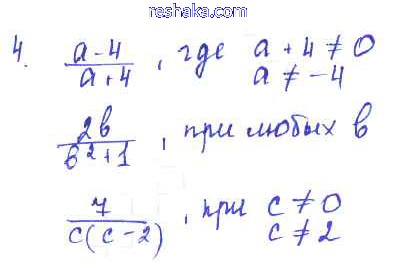 reshaka.com
4. a-4/a+4, где a+4≠0
a≠-4
2b/b²+1, при любых b
7/c(c-2), при c≠0
c≠2